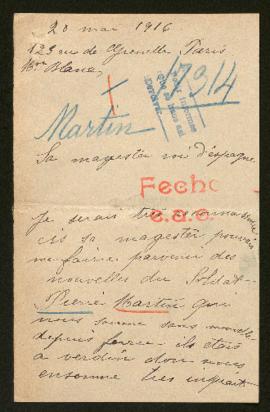 20 mai 1916
123 rue de Grenelle Paris
Mme Blanc
17914
Martin
Sa magesta roi d'espagne
Fecho
e.a.c.
Je serais très reconnaissante
cis sa magester pouvais
me faire parvenir des
nouvelles du Soldat
Pierre Martin que
nous somme sans nouvelle
depuis ils étais
a verdun don nous
ensomme tres inquiet